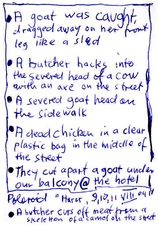 • A goat was caught,
dragged away on her front
leg like a sled
• A butcher hacks into
the severed head of a cow
with an axe on the street
• A severed goat head on
the sidewalk
• A dead chicken in a clear
plastic bag in the middle of
the street
• They cut apart a goat under
our balcony @ the hotel
Polaroid "Harar, 9,10,11 VIII
• A butcher cuts off meat from a
skeleton of a camel on the street